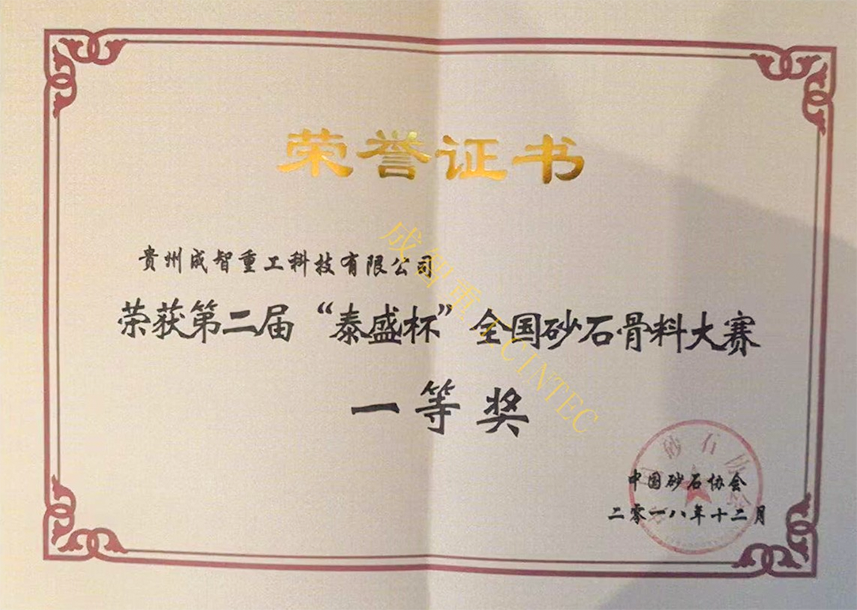 荣誉证书
贵州成智重工科技有限公司
荣获第二届“泰盛杯”全国砂石骨料大赛
一等奖
中国砂石协会
二零一八年十二月
成智重工CINTEC
中国砂石协会